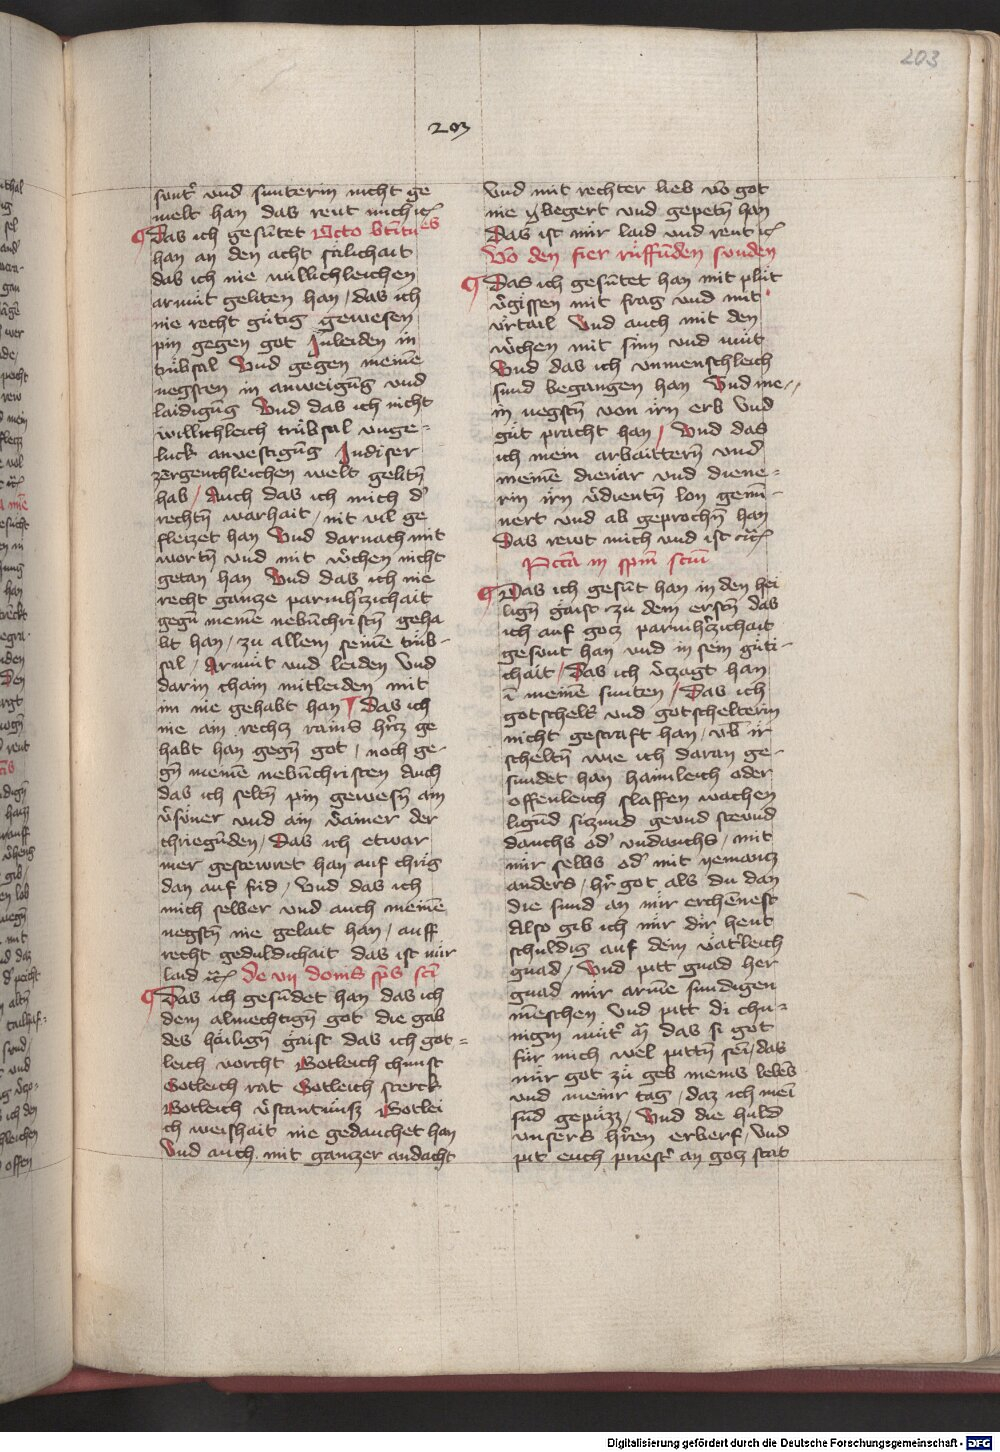 203
203
suntˀ vnd sunterin nicht ge
melt han das reut mich ꝛc
Das ich gesūtet Octo btitūes
han an den acht sälichait
das ich nie willichleichen
armüt geliten han / das ich
nie recht gütig gewesen
pin gegen got In leiden in
trübsal Vnd gegen meinē
negsten in anweigūg vnd
laidigūg Vnd das ich nicht
willichleich trübsal vnge-
luck anvestigūg In diser
zergenchleichen welt gelitn̄
hab / Auch das ich mich dˀ
rechtn̄ warhait / nit vil ge
fleizet han Vnd darnach mit
wortn̄ vnd mit wˀchen nicht
getan han Vnd das ich nie
recht gancze parmhˀczichait
gegn̄ meinē nebn̄christn̄ geha
bt han / zu allem seinē trüb-
sal / Armüt vnd leiden Vnd
darin chain mitleiden mit
im nie gehabt han / Das ich
nie ain rechcz rains hˀcz ge
habt han gegn̄ got / noch ge-
gn̄ meinē nebn̄christen Auch
das ich seltn̄ pin gewesn̄ ain
vˀsüner vnd ain vˀainer der
chriegūden / Das ich etwar
mer gestewret han auf chrig
dan auf frid / Vnd das ich
mich selber vnd auch meinē
negstn̄ nie gelait han / auff
recht geduldichait das ist mir
laid ꝛc De vii donis sp̄s sc̄i
Das ich gesūdet han das ich
dem almechtign̄ got die gab
des häilign̄ gaist das ich got-
leich vorcht Gotleich chunst
Gotleich rat Gotleich sterck
Gotleich vˀstantnüsz Gotlei
ch weishait nie gedauchet han
Vnd auch mit ganczer andacht
Vnd mit rechter lieb vō got
nie begert vnd gepetn̄ han
Das ist mir laid vnd reut ꝛc
Vō den fier rüffūden sunden
Das ich gesūtet han mit plüt
vˀgissen mit frag vnd mit
vrtail Vnd auch mit den
wˀchen mit sinn vnd müt
Vnd das ich vnmenschleich
sund begangen han Vnd me-
in negstn̄ von irn erb Vnd
güt pracht han / Vnd das
ich mein arbaittern vnd
meinē dienär vnd diene-
rin irn vˀdientn̄ lon gemi-
nert vnd ab geprochn̄ han
Das rewt mich vnd ist ꝛc
Pctā in spm̄ scm̄
Das ich gesūt han in den hei
lign̄ gaist zu dem erstn̄ das
ich auf gocz parmhˀczichait
gesunt han vnd in sein güti-
chait / Das ich vˀzagt han
in meinē sunten / Das ich
gotschelt vnd gotschelterin
nicht gestraft han / vb̄ ir
scheltn̄ wie ich daran ge-
sundet han haimleich oder
offenleich slaffen wachen
ligūd siczund geund steund
dauchs odˀ vndauchs / mit
mir selbs odˀ mit yemancz
anders / hˀr got als du dan
die sund an mir erchēnest
Also gib ich mir dir heut
schuldig auf dem vatˀleich
gnad / Vnd pitt gnad her
gnad mir armē sundigen
mēschen Vnd pitt di chu-
nigin mütˀ das si got
für mich wel pittn̄ / das
mir got zü geb meins lebēs
vnd meinr tag / daz ich mei
sūd gepüzz / Vnd die huld
vnsers hˀren erberf / Vnd
pit euch priestˀ an gocz stat
Digitalisierung gefördert durch die Deutsche Forschungsgemeinschaft - DFG